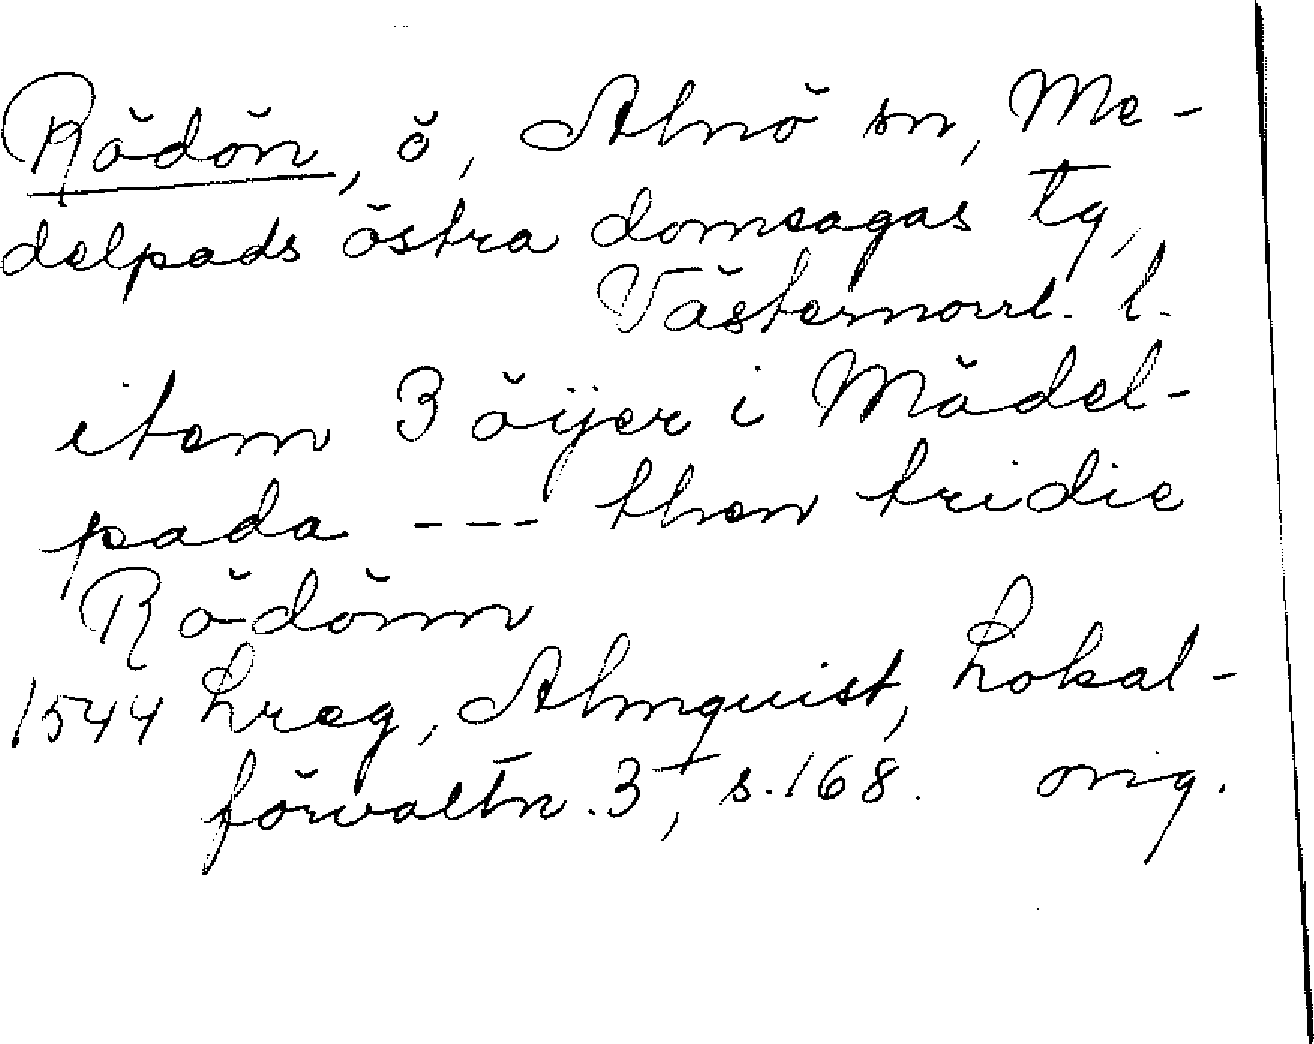 Rödön, ö, Alnö sn, Me-
delpads östra domsagas tg,
Västernorrl. l.
item 3 öijer i Mädel-
pada --- then tridie
Rödönn
1544 Lreg, Almquist, Lokal-
förvaltn. 3, s. 168. orig.